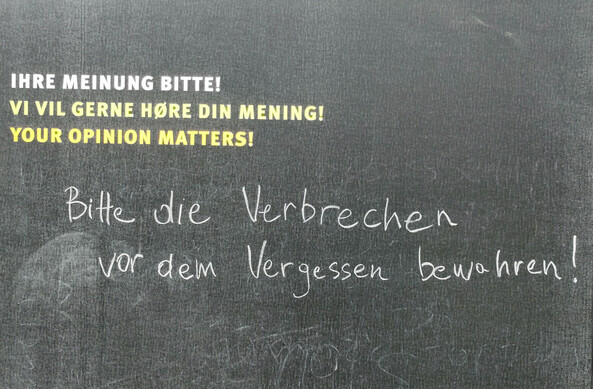 IHRE MEINUNG BITTE!
VI VIL GERNE HØRE DIN MENING!
YOUR OPINION MATTERS!
Bitte die Verbrechen
vor dem Vergessen bewahren!